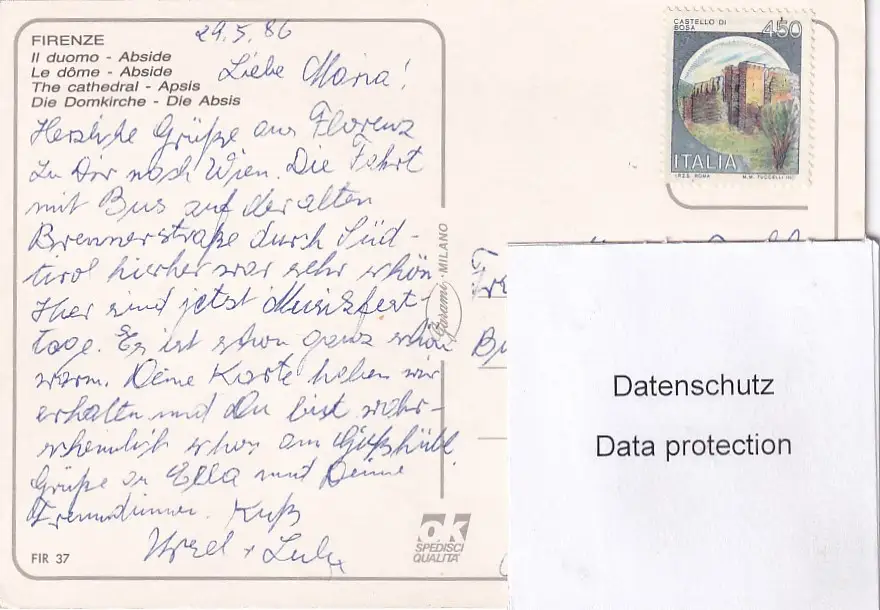 FIRENZE
Il duomo - Abside
Le dôme - Abside
The cathedral - Apsis
Die Domkirche - Die Absis
29.5.86
Liebe Maria!
Herzliche Grüße aus Florenz
zu Dir nach Wien. Die Fahrt
mit Bus auf der alten
Brennerstraße durch Süd-
tirol hierher war sehr schön.
Hier sind jetzt Musikfest-
tage. Es ist schon ganz schön
warm. Deine Karte haben wir
erhalten und Du bist wahr-
scheinlich schon am Gießhübl.
Grüße an Ella und Deine
Freundinnen. Kuß
FIR 37
MILANO
ok
SPEDISCI
QUALITA'
CASTELLO DI
BOSA
450
ITALIA
I.P.Z.S. ROMA
M.M. TUCCELLI
Datenschutz
Data protection